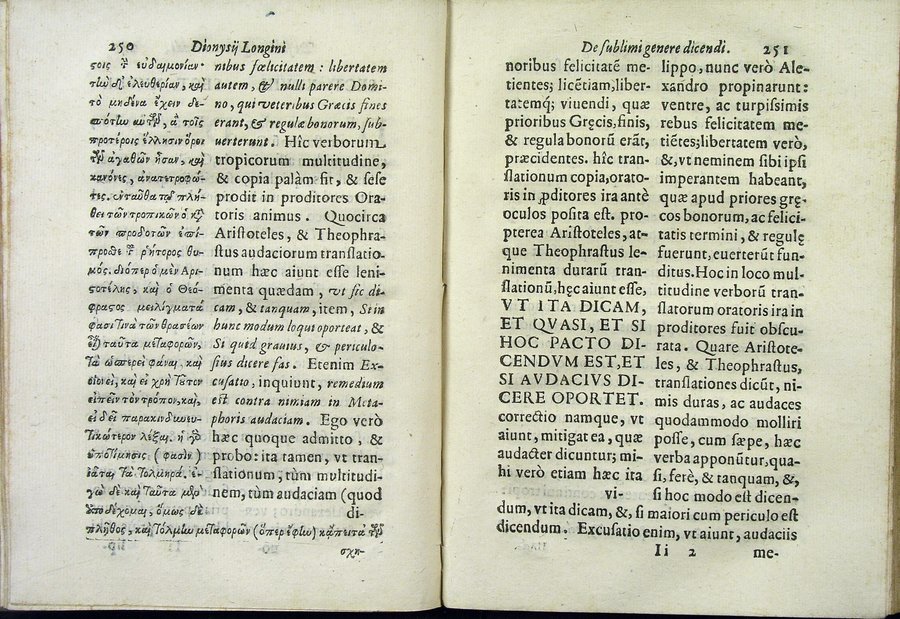 250 Dionysij Longini
τοῖς τ εὐδαιμονίαν·
ἐλευθερίαν, καὶ
τὸ μηδένα ἔχειν δε-
ἃ τοῖς
προτέροις ἕλλησιν ὅροι
ἀγαθῶν ἦσαν, καὶ
κανόνες, ἀνατετροφό-
τες. ἐνταῦθα πλή-
θει τῶν τροπικῶν ὁ κ
τῶν προδοτῶν ἐπί-
προσθε τ ῥήτορος θυ-
μός. διόπερ ὁ μὲν Ἀρι-
στοτέλης, καὶ ὁ Θεό-
φραστος μειλίγματά
φασί τινα τῶν θρασέων
ταῦτα μεταφορῶν,
τὰ ὡσπερεὶ φάναι, καὶ
οἱονεὶ, καὶ εἰ χρὴ τοῦτον
εἰπεῖν τὸν τρόπον, καὶ,
εἰ δεῖ παρακινδυνευ-
τικώτερον λέξαι. ἡ γὸ
ὑποτίμησις (φασὶν)
ἰᾶται, τὰ τολμηρά. ἐ-
γὼ δὲ καὶ ταῦτα μὲν
ὑποδέχομαι, ὅμως δὲ
πλῆθος, καὶ μεταφορῶν (ὅπερ ἔφην) κἄπειτα
σχη-
nibus fœlicitatem : libertatem
autem, & nulli parere Domi-
no, qui veteribus Græcis fines
erant, & regulæ bonorum, sub-
uerterunt. Hîc verborum
tropicorum multitudine,
& copia palàm fit, & sese
prodit in proditores Ora-
toris animus. Quocirca
Aristoteles, & Theophra-
stus audaciorum translatio-
num hæc aiunt esse leni-
menta quædam, vt sic di-
cam, & tanquam, item, Si in
hunc modum loqui oporteat, &
Si quid grauius, & periculo-
sius dicere fas. Etenim Ex-
cusatio, inquiunt, remedium
est contra nimiam in Meta-
phoris audaciam. Ego verò
hæc quoque admitto, &
probo: ita tamen, vt tran-
slationum, tùm multitudi-
nem, tùm audaciam (quod
di-
De sublimi genere dicendi. 251
noribus felicitatē me-
tientes; licētiam, liber-
tatemq; viuendi, quæ
prioribus Gręcis, finis,
& regula bonorū erāt,
præcidentes. hîc tran-
slationum copia, orato-
ris in ꝓditores ira antè
oculos posita est. pro-
pterea Aristoteles, at-
que Theophrastus le-
nimenta durarū tran-
slationū, hęc aiunt esse,
VT ITA DICAM,
ET QVASI, ET SI
HOC PACTO DI-
CENDVM EST, ET
SI AVDACIVS DI-
CERE OPORTET.
correctio namque, vt
aiunt, mitigat ea, quæ
audacter dicuntur; mi-
hi verò etiam hæc ita
vi-
lippo, nunc verò Ale-
xandro propinarunt:
ventre, ac turpissimis
rebus felicitatem me-
tiētes; libertatem verò,
&, vt neminem sibi ipsi
imperantem habeant,
quæ apud priores grę-
cos bonorum, ac felici-
tatis termini, & regulę
fuerunt, euerterūt fun-
ditus. Hoc in loco mul-
titudine verborū tran-
slatorum oratoris ira in
proditores fuit obscu-
rata. Quare Aristote-
les, & Theophrastus,
translationes dicūt, ni-
mis duras, ac audaces
quodammodo molliri
posse, cum sæpe, hæc
verba apponūtur, qua-
si, ferè, & tanquam, &,
si hoc modo est dicen-
dum, vt ita dicam, &, si maiori cum periculo est
dicendum. Excusatio enim, vt aiunt, audaciis
Ii 2 me-